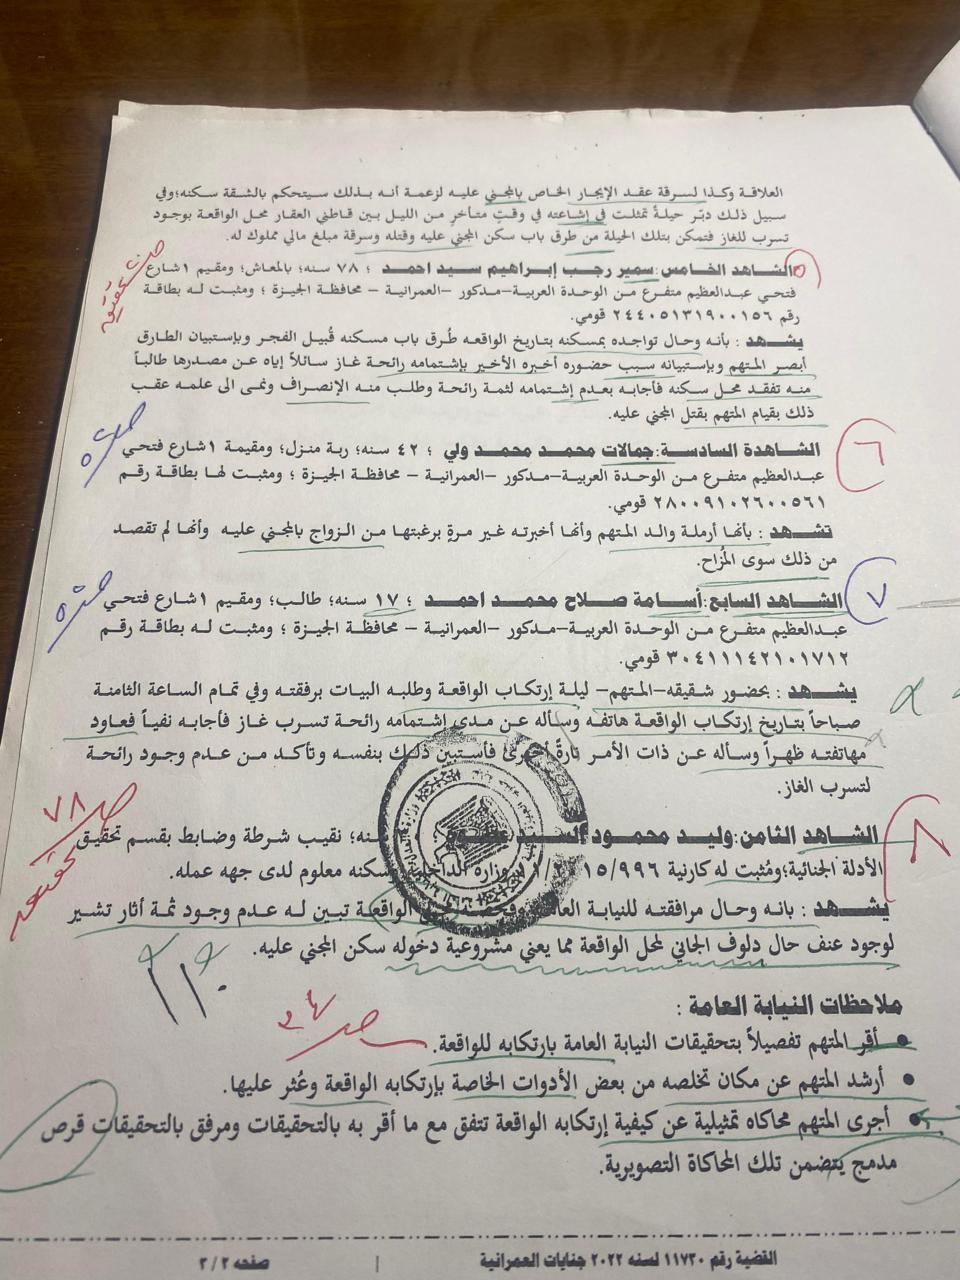 العلاقة وكذا لسرقة عقد الإيجار الخاص بالمجني عليه لزعمة أنه بذلك سيتحكم بالشقة سكنه؛وفي
سبيل ذلك دبّر حيلةً تمثلت في إشاعته في وقتٍ متأخرٍ من الليل بين قاطني العقار محل الواقعة بوجود
تسرب للغاز فتمكن بتلك الحيلة من طرق باب سكن المجني عليه وقتله وسرقة مبلغ مالي مملوك له.
الشاهد الخامس:سمير رجب إبراهيم سيد احمد ؛ ٧٨ سنه؛ بالمعاش؛ ومقيم ١شارع
فتحي عبدالعظيم متفرع من الوحدة العربية-مدكور -العمرانية- محافظة الجيزة ؛ ومثبت له بطاقة
رقم ٢٤٤٠٥١٣١٩٠٠١٥٦ قومي.
يشـهد : بأنه وحال تواجده بمسكنه بتاريخ الواقعه طُرق باب مسكنه قُبيل الفجر وبإستبيان الطارق
أبصر المتهم وبإستبيانه سبب حضوره أخبره الأخير بإشتمامه رائحة غاز سائلاً إياه عن مصدرها طالباً
منه تفقد محل سكنه فأجابه بعدم إشتمامه لثمة رائحة وطلب منه الإنصراف ونمى الى علمه عقب
ذلك بقيام المتهم بقتل المجني عليه.
الشاهدة السادسة:جمالات محمد محمد ولي ؛ ٤٢ سنه؛ ربة منزل؛ ومقيمة ١شارع فتحي
عبدالعظيم متفرع من الوحدة العربية-مدكور -العمرانية - محافظة الجيزة ؛ ومثبت لها بطاقة رقم
٢٨٠٠٩١٠٢٦٠٠٥٦١ قومي.
تشـهد : بأنها أرملة والد المتهم وأنها أخبرته غير مرةٍ برغبتها من الزواج بالمجني عليه وأنها لم تقصد
من ذلك سوى المُزاح.
الشاهد السابع:أسامة صلاح محمد احمد ؛ ١٧ سنه؛ طالب؛ ومقيم ١شارع فتحي
عبدالعظيم متفرع من الوحدة العربية-مدكور -العمرانية - محافظة الجيزة ؛ ومثبت له بطاقة رقم
٣٠٤١١١٤٢١٠١٧١٢ قومي.
يشـهد : بحضور شقيقه-المتهم- ليلة إرتكاب الواقعة وطلبه البيات برفقته وفي تمام الساعة الثامنة
صباحاً بتاريخ إرتكاب الواقعة هاتفه وسأله عن مدى إشتمامه رائحة تسرب غاز فأجابه نفياً فعاود
مهاتفته ظهراً وسأله عن ذات الأمر تارةً أخرى فأستبين ذلك بنفسه وتأكد من عدم وجود رائحة
لتسرب الغاز.
الشاهد الثامن:وليد محمود سنه؛ نقيب شرطة وضابط بقسم تحقيق
الأدلة الجنائية؛ومُثبت له كارنية ١٥/٩٩٦ وزارة الداخلية سكنه معلوم لدى جهه عمله.
يشـهد : بانه وحال مرافقته للنيابة العامة وفحصه الواقعة تبين له عدم وجود ثمة أثار تشير
لوجود عنف حال دلوف الجاني لمحل الواقعة مما يعني مشروعية دخوله سكن المجني عليه.
ملاحظات النيابة العامة :
• أقر المتهم تفصيلاً بتحقيقات النيابة العامة بارتكابه للواقعة.
• أرشد المتهم عن مكان تخلصه من بعض الأدوات الخاصة بإرتكابه الواقعة وعُثر عليها.
• أجرى المتهم محاكاه تمثيلية عن كيفية إرتكابه الواقعة تتفق مع ما أقر به بالتحقيقات ومرفق بالتحقيقات قرص
مدمج يتضمن تلك المحاكاة التصويرية.
٥
٦
٧
٨
ص٧٨
ص٢٤
القضية رقم ١١٧٣٠ لسنه ٢٠٢٢ جنايات العمرانية | صفحه ٢/٣